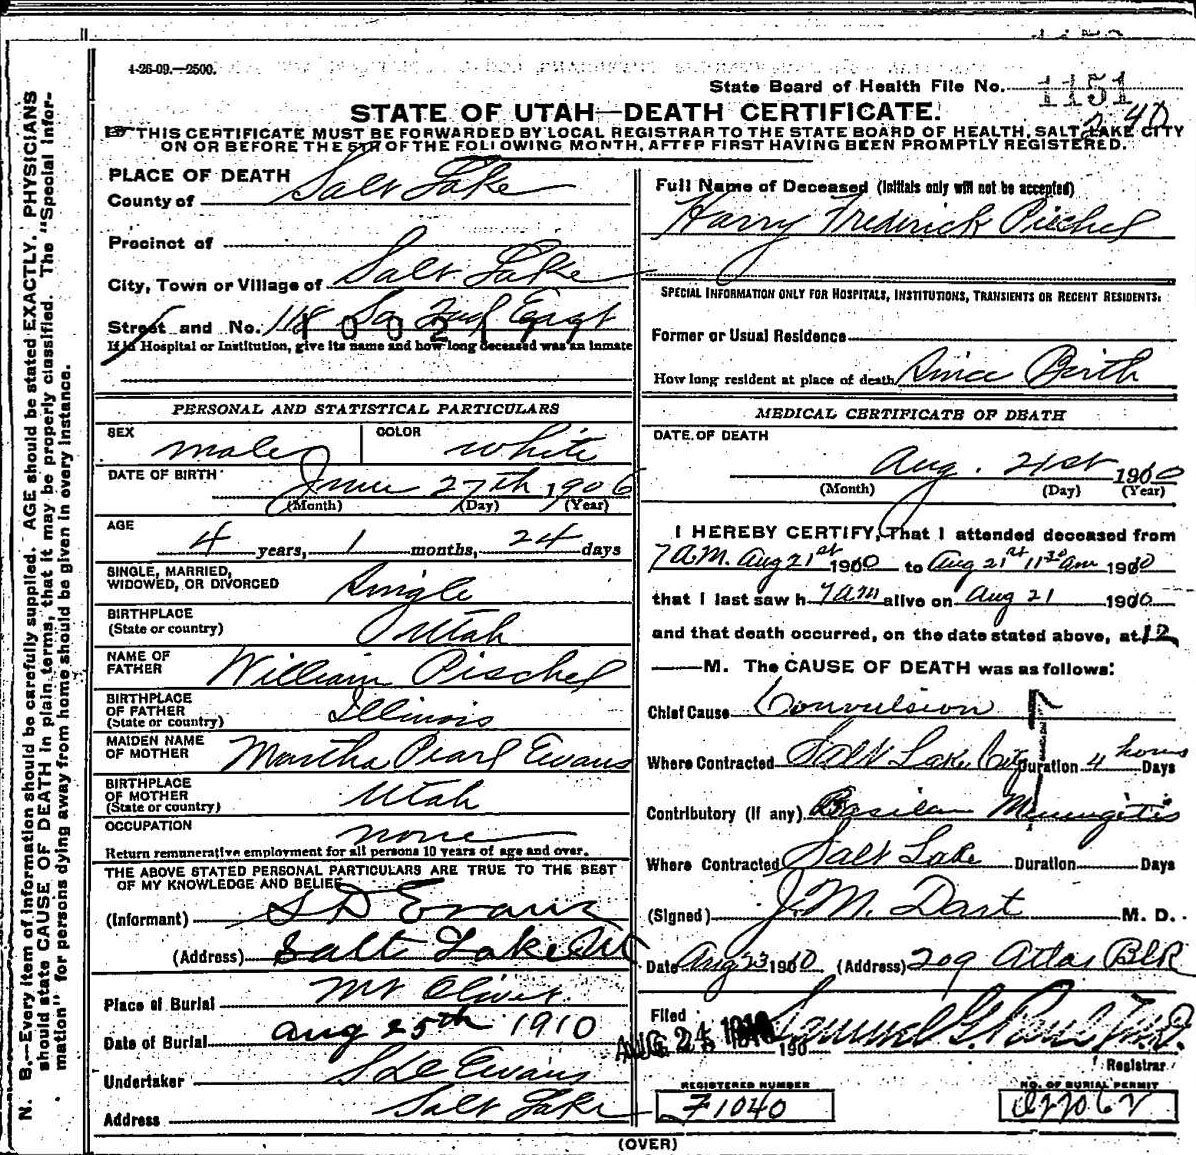 4-26-09.—2500.
State Board of Health File No. 1151
STATE OF UTAH—DEATH CERTIFICATE.
2 40
THIS CERTIFICATE MUST BE FORWARDED BY LOCAL REGISTRAR TO THE STATE BOARD OF HEALTH, SALT LAKE CITY
ON OR BEFORE THE 5TH OF THE FOLLOWING MONTH, AFTER FIRST HAVING BEEN PROMPTLY REGISTERED.
PLACE OF DEATH
County of Salt Lake
Precinct of
City, Town or Village of Salt Lake
Street and No. 118 So East
If in Hospital or Institution, give its name and how long deceased was an inmate
PERSONAL AND STATISTICAL PARTICULARS
SEX male COLOR white
DATE OF BIRTH June 27th 1906
(Month) (Day) (Year)
AGE 4 years, 1 months, 24 days
SINGLE, MARRIED,
WIDOWED, OR DIVORCED Single
BIRTHPLACE
(State or country) Utah
NAME OF
FATHER William Pischel
BIRTHPLACE
OF FATHER
(State or country) Illinois
MAIDEN NAME
OF MOTHER Martha Pearl Evans
BIRTHPLACE
OF MOTHER
(State or country) Utah
OCCUPATION none
Return remunerative employment for all persons 10 years of age and over.
THE ABOVE STATED PERSONAL PARTICULARS ARE TRUE TO THE BEST
OF MY KNOWLEDGE AND BELIEF
(Informant) S D Evans
(Address) Salt Lake
Place of Burial Mt Olivet
Date of Burial Aug 25th 1910
Undertaker Evans
Address Salt Lake
Full Name of Deceased (Initials only will not be accepted)
Harry Frederick Pischel
SPECIAL INFORMATION ONLY FOR HOSPITALS, INSTITUTIONS, TRANSIENTS OR RECENT RESIDENTS:
Former or Usual Residence
How long resident at place of death Since Birth
MEDICAL CERTIFICATE OF DEATH
DATE OF DEATH
Aug. 21st 1910
(Month) (Day) (Year)
I HEREBY CERTIFY, That I attended deceased from
7 A.M. Aug 21st 1910 to Aug 21st 11 30 am 1910
that I last saw h 7 AM alive on Aug 21 1910
and that death occurred, on the date stated above, at 12
M. The CAUSE OF DEATH was as follows:
Chief Cause Convulsion
Where Contracted Salt Lake City Duration 4 hours Days
Contributory (if any) Basilar Meningitis
Where Contracted Salt Lake Duration Days
(Signed) J. M. Dart M. D.
Date Aug 23 1910 (Address) 209 Atlas Blk
Filed AUG 24 1910 190
Samuel G. Paul M.D.
Registrar
REGISTERED NUMBER
F1040
NO. OF BURIAL PERMIT
(OVER)
N. B.—Every item of information should be carefully supplied. AGE should be stated EXACTLY. PHYSICIANS
should state CAUSE OF DEATH in plain terms, that it may be properly classified. The "Special Infor-
mation" for persons dying away from home should be given in every instance.